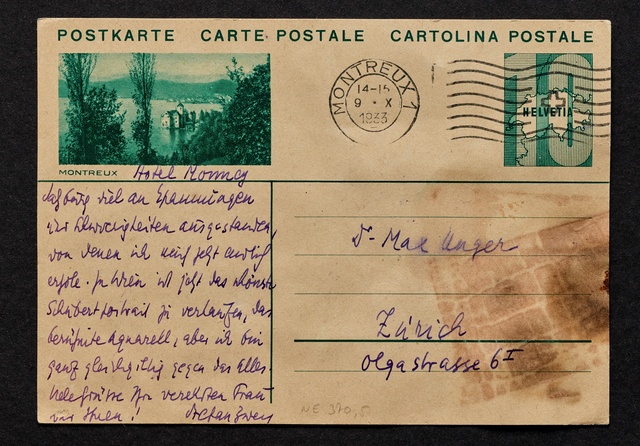 POSTKARTE CARTE POSTALE CARTOLINA POSTALE
MONTREUX 1
14-15
9 · X
1933
10
HELVETIA
MONTREUX
Hotel Monney
Salzburg viel an Spannungen
und Schwierigkeiten ausgestanden,
von denen ich mich jetzt
erhole. In Wien ist jetzt das schönste
Schubertportrait zu verkaufen, das
berühmte Aquarell, aber ich bin
ganz gleichgiltig gegen das Alles.
Ihrer verehrten Frau
und Ihnen! Stefan Zweig
Dr Max Unger
Zürich
Olgastrasse 6 I
NE 370,5